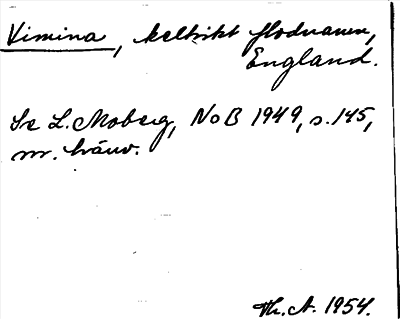 Vimina, keltiskt flodnamn,
England.
Se L. Moberg, NoB 1949, s. 145,
m. hänv.
Th. A. 1954.